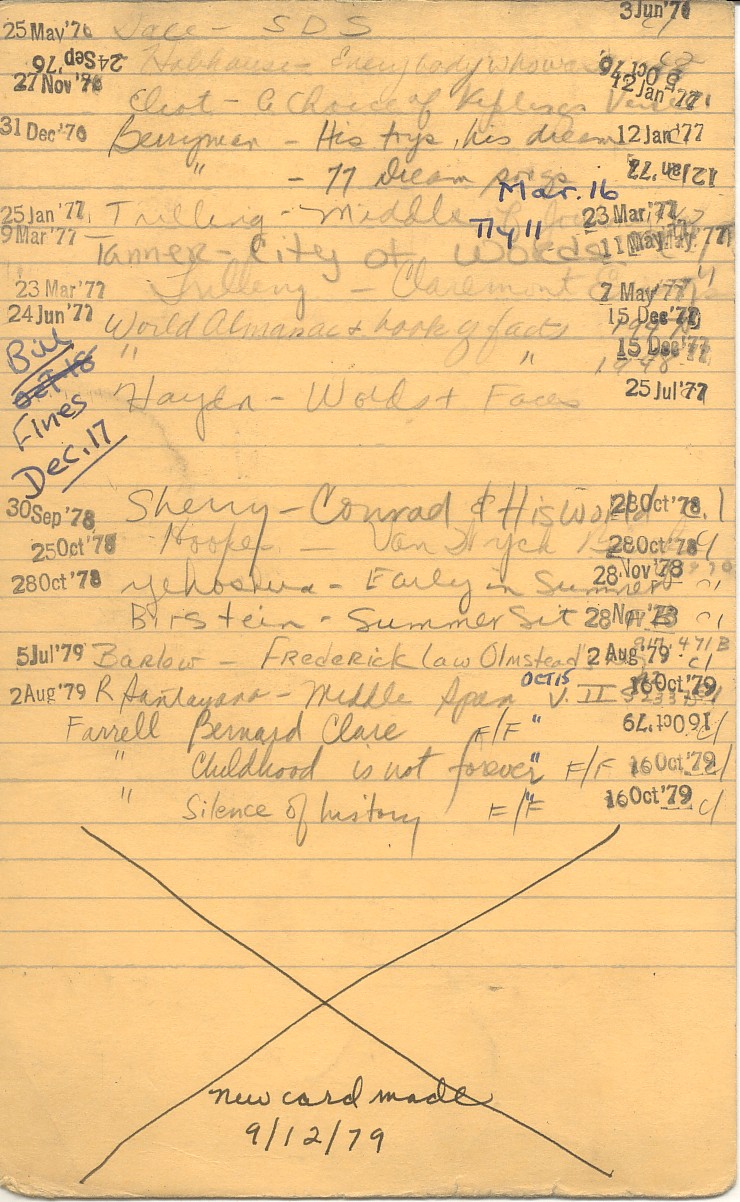 25 May '76 Sale - SDS 3 Jun '76 c/
24 Sep '76 Hobhouse - Everybody who was 5 Oct '76 c2
27 Nov '76 Eliot - A Choice of Kiplings Verse 12 Jan '77
31 Dec '76 Berryman - His toys, his dream 12 Jan '77
" - 77 Dream songs 12 Jan '77
Mar. 16
25 Jan '77 Trilling - Middle of Journey 23 Mar '77
My 11
9 Mar '77 Tanner - City of Words 11 May '77
23 Mar '77 Trilling - Claremont 7 May '77
24 Jun '77 World Almanac & book of facts 15 Dec '77
" " 1948 15 Dec '77
Bill
Oct 18
Fines
Dec. 17
Haydn - Words & Faces 25 Jul '77
30 Sep '78 Sherry - Conrad & His World 28 Oct '78 c.1
25 Oct '78 Hoopes - Van Wyck 28 Oct '78 c/
28 Oct '78 Yehoshua - Early in Summer 28 Nov '78 c/
Birstein - Summer Sit 28 Nov '78 c/
917.471B
5 Jul '79 Barlow - Frederick Law Olmstead's 2 Aug '79 c/
OCT 15
2 Aug '79 R Santayana - Middle Span V. II 16 Oct '79
Farrell Bernard Clare F/F " 16 Oct '79 c/
" Childhood is not forever " F/F 16 Oct '79 c/
" Silence of history F/F " 16 Oct '79 c/
new card made
9/12/79